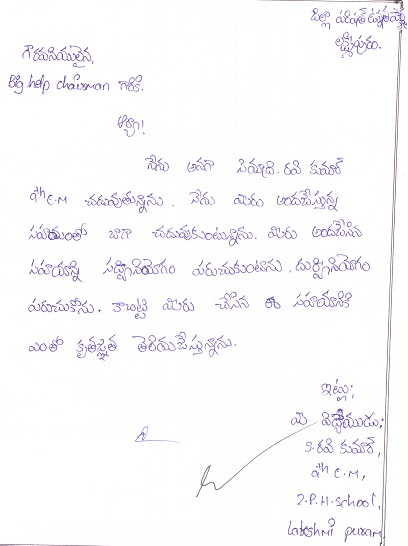 జిల్లా పరిషత్ ఉన్నత
లక్ష్మీపురం.
గౌరవనీయులైన,
Big help chairman గారికి.
ఆర్యా!
నేను అనగా సిమాద్రి. రవి కుమార్
9th E.M చదువుతున్నాను. నేను మీరు అందచేస్తున్న
సహాయంతో బాగా చదువుకుంటున్నాను. మీరు అందచేసిన
సహాయాన్ని సద్వినియోగం పరుచుకుంటాను. దుర్వినియోగం
పరుచుకోను. కాబట్టి మీరు చేసిన ఈ సహాయానికి
ఎంతో కృతజ్ఞత తెలియచేస్తున్నాను.
ఇట్లు;
మీ విధేయుడు;
S. రవి కుమార్,
9th E.M,
Z.P.H. School,
Lakshmi puram